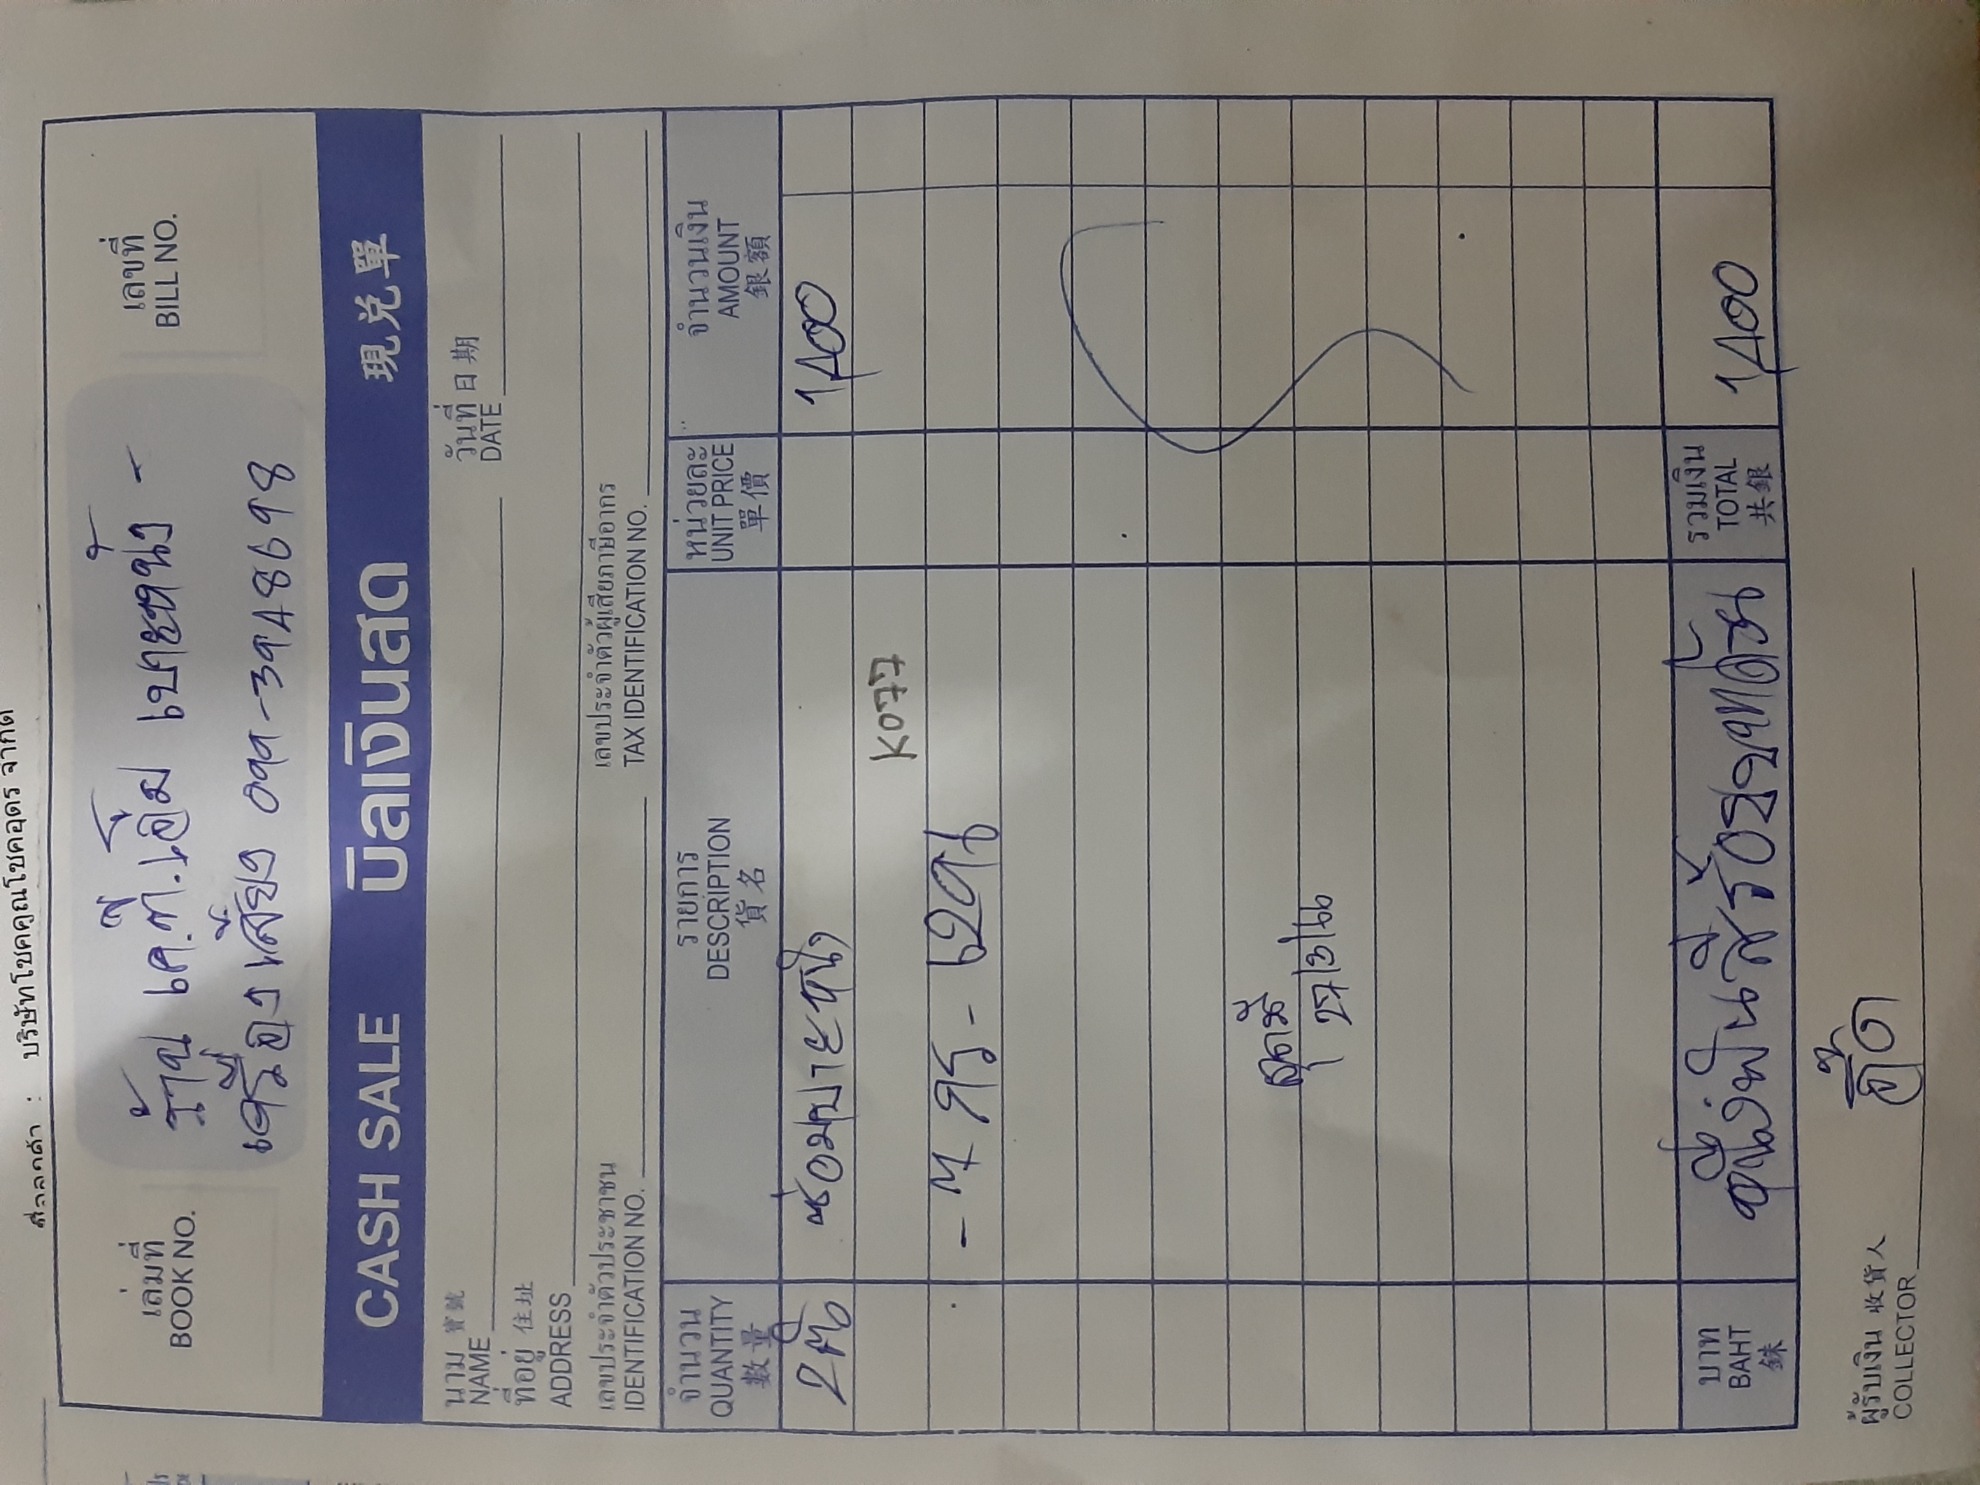 บริษัทโชคคูณโชคอุดร จำกัด
ร้าน เค.ที.เอ็ม เบาะหนัง -
เครื่องเสียง 099-3948698
เล่มที่
BOOK NO.
เลขที่
BILL NO.
CASH SALE บิลเงินสด 現兑單
นาม 寶號
NAME
วันที่ 日期
DATE
ที่อยู่ 住址
ADDRESS
เลขประจำตัวประชาชน
IDENTIFICATION NO.
เลขประจำตัวผู้เสียภาษีอากร
TAX IDENTIFICATION NO.
จำนวน
QUANTITY
數量
รายการ
DESCRIPTION
貨名
หน่วยละ
UNIT PRICE
單價
จำนวนเงิน
AMOUNT
銀額
2 ซ่อมเบาะหนัง 1,400
K077
บาท
BAHT
銖
หนึ่งพันสี่ร้อยบาทถ้วน
รวมเงิน
TOTAL
共銀
1,400
ผู้รับเงิน 收貨人
COLLECTOR